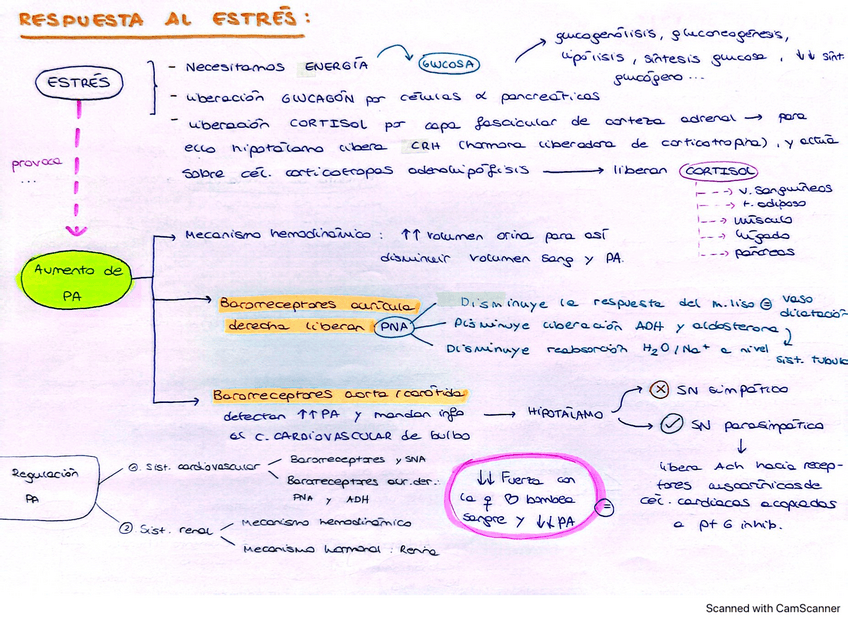 RESPUESTA AL ESTRÉS:
ESTRÉS
- Necesitamos ENERGÍA
GLUCOSA
glucogenólisis, gluconeogénesis,
lipólisis, síntesis glucosa, ↓↓ sínt.
glucógeno...
- Liberación GLUCAGÓN por células α pancreáticas
- Liberación CORTISOL por capa fascicular de corteza adrenal → para
ello hipotálamo libera CRH (hormona liberadora de corticotropina), y actúa
sobre cél. corticotropas adenohipófisis → liberan CORTISOL
v. sanguíneos
t. adiposo
músculo
hígado
páncreas
provoca
...
Aumento de
PA
Mecanismo hemodinámico: ↑↑ volumen orina para así
disminuir volumen sang y PA.
Barorreceptores aurícula
derecha liberan PNA
Disminuye la respuesta del m. liso = vaso
dilatación
Disminuye liberación ADH y aldosterona
Disminuye reabsorción H2O/Na+ a nivel
sist. tubular
Barorreceptores aorta/carótida
detectan ↑↑ PA y mandan info
al C. CARDIOVASCULAR de bulbo
→ HIPOTÁLAMO
SN simpático
SN parasimpático
libera Ach hacia recep-
tores muscarínicos de
cél. cardíacas acopladas
a pt G inhib.
=
↓↓ Fuerza con
la q ♡ bombea
sangre y ↓↓ PA
Regulación
PA
① Sist. cardiovascular
Barorreceptores y SNA
Barorreceptores aur. der.:
PNA y ADH
② Sist. renal
Mecanismo hemodinámico
Mecanismo hormonal: Renina
Scanned with CamScanner